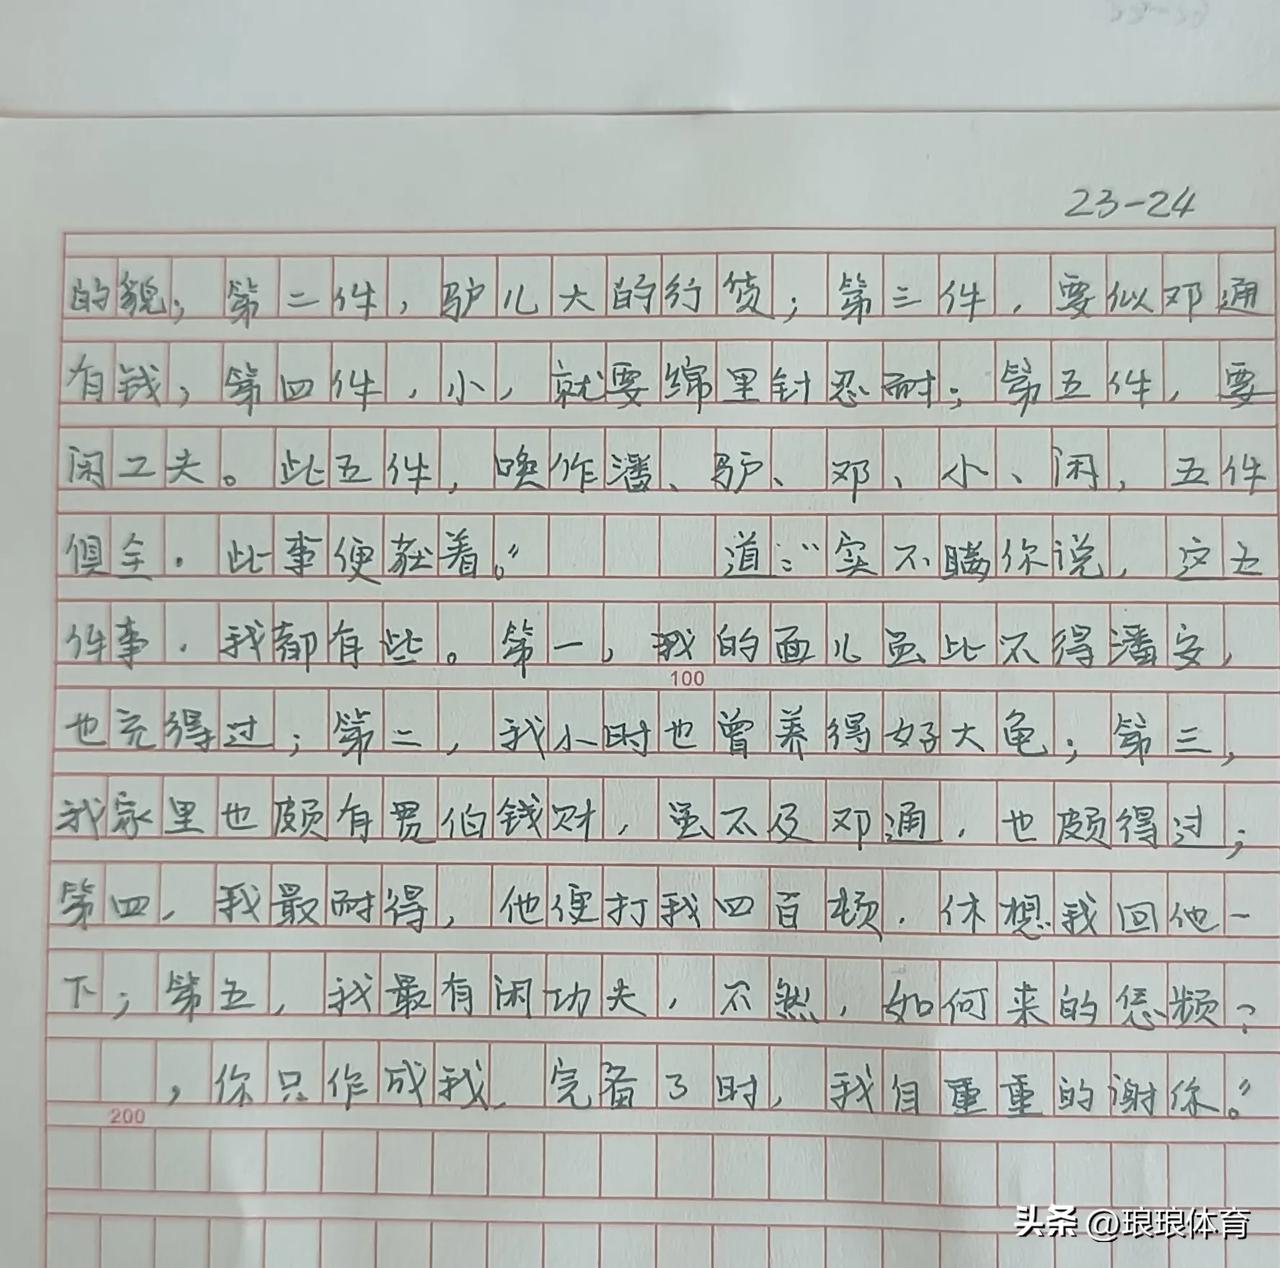 23-24
的貌；第二件，驴儿大的行货；第三件，要似邓通
有钱；第四件，小，就要绵里针忍耐；第五件，要
闲工夫。此五件，唤作潘、驴、邓、小、闲，五件
俱全，此事便获着。” 道：“实不瞒你说，这五
件事，我都有些。第一，我的面儿虽比不得潘安，
也充得过；第二，我小时也曾养得好大龟；第三，
我家里也颇有贯伯钱财，虽不及邓通，也颇得过；
第四，我最耐得，他便打我四百顿，休想我回他一
下；第五，我最有闲功夫，不然，如何来的恁频？
，你只作成我，完备了时，我自重重的谢你。”
100
200
头条 @琅琅体育